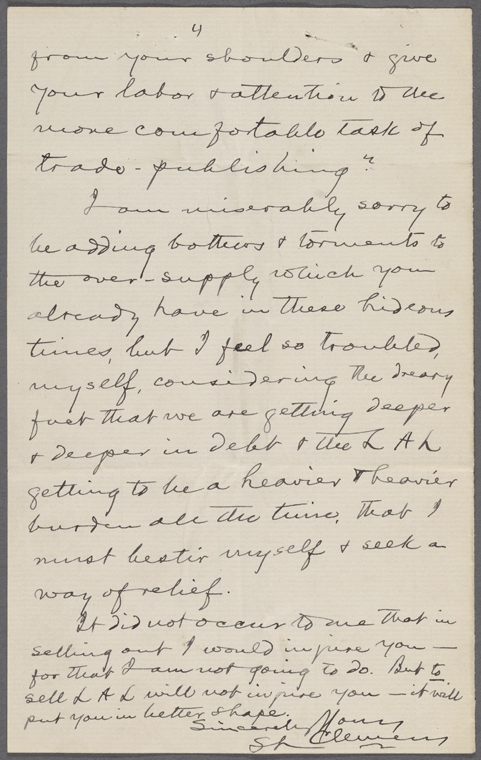 4
from your shoulders & give
your labor & attention to the
more comfortable task of
trade-publishing"?
I am miserably sorry to
be adding bothers & torments to
the over-supply which you
already have in these hideous
times, but I feel so troubled,
myself, considering the dreary
fact that we are getting deeper
& deeper in debt & the L A L
getting to be a heavier & heavier
burden all the time, that I
must bestir myself & seek a
way of relief.
It did not occur to me that in
selling out I would injure you —
for that I am not going to do. But to
sell L A L will not injure you — it will
put you in better shape.
Sincerely Yours
SL Clemens